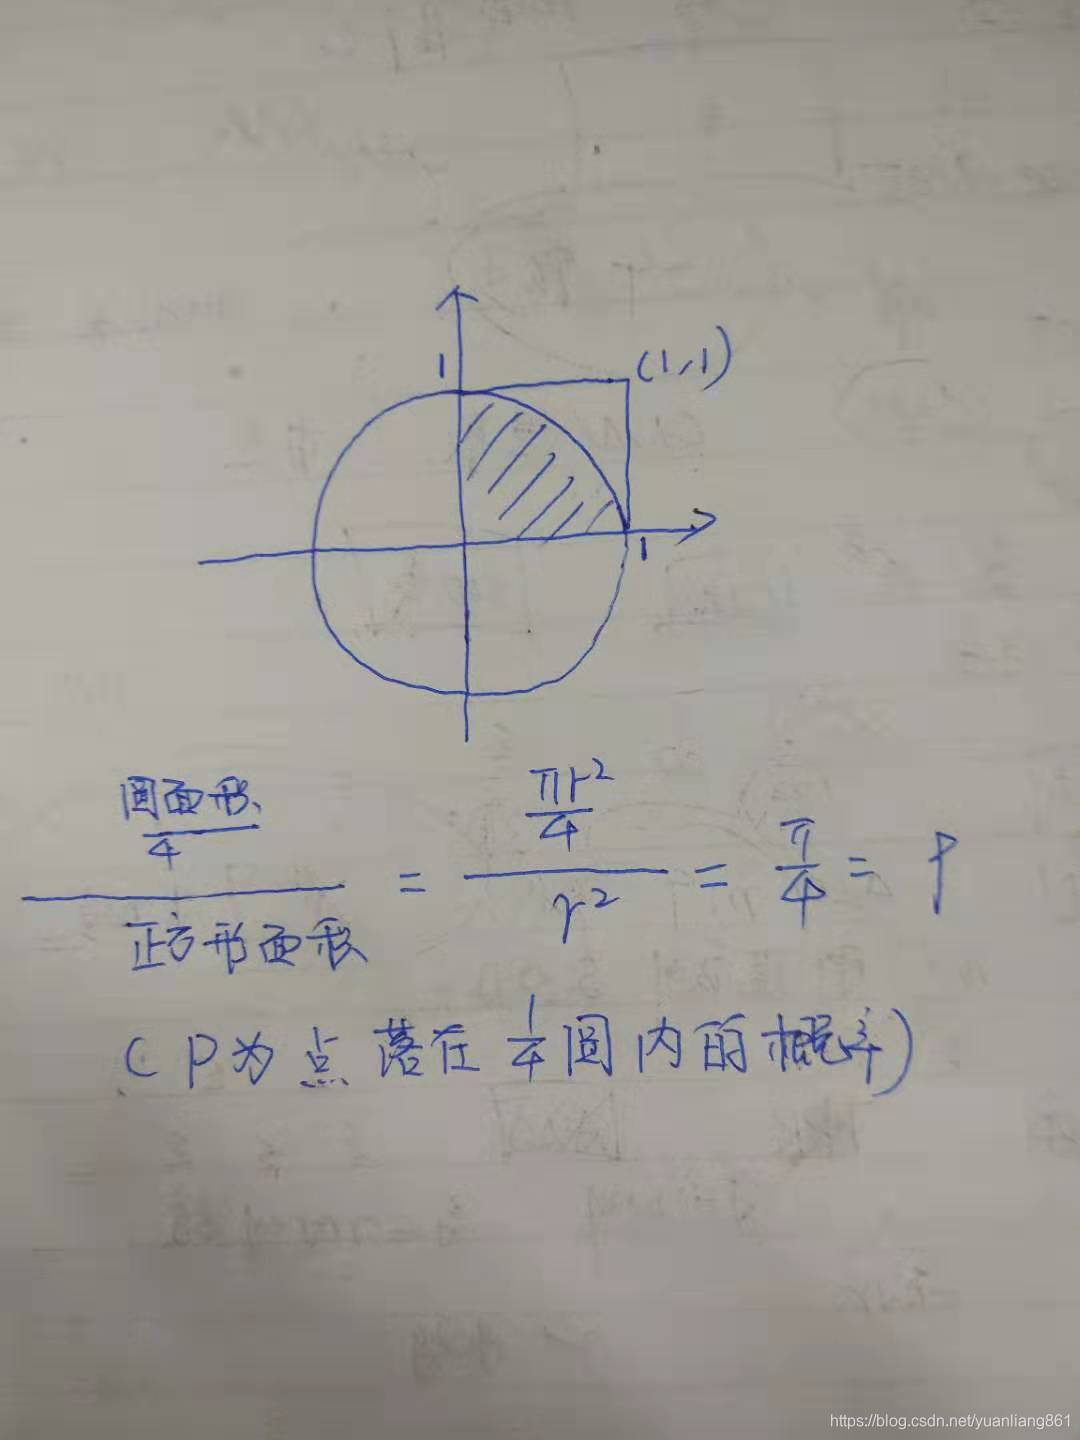 1
(1,1)
1
圆面积/4 / 正方形面积 = πr²/4 / r² = π/4 = P
(P为点落在1/4圆内的概率)
https://blog.csdn.net/yuanliang861